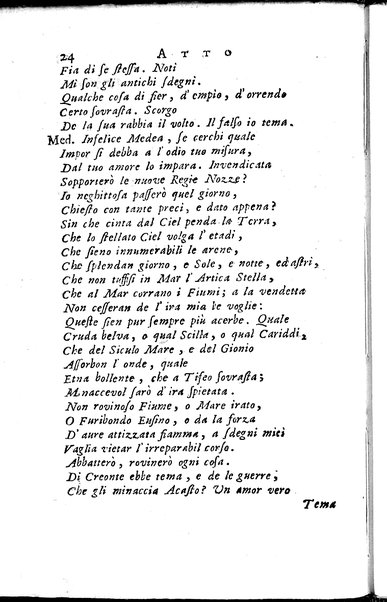 24 ATTO
Fia di se ſteſſa. Noti
Mi ſon gli antichi ſdegni.
Qualche coſa di fier, d'empio, d'orrendo
Certo ſovraſta. Scorgo
De la ſua rabbia il volto. Il falſo io tema.
Med. Infelice Medea, ſe cerchi quale
Impor ſi debba a l'odio tuo miſura,
Dal tuo amore lo impara. Invendicata
Sopporterò le nuove Regie Nozze?
Io neghittoſa paſſerò quel giorno,
Chieſto con tante preci, e dato appena?
Sin che cinta dal Ciel penda la Terra,
Che lo ſtellato Ciel volga l'etadi,
Che ſieno innumerabili le arene,
Che ſplendan giorno, e Sole, e notte, ed aſtri,
Che non tuffiſi in Mar l'Artica Stella,
Che al Mar corrano i Fiumi; a la vendetta
Non ceſſeran de l'ira mia le voglie:
Queſte ſien pur ſempre più acerbe. Quale
Cruda belva, o qual Scilla, o qual Cariddi,
Che del Siculo Mare, e del Gionio
Aſſorbon l'onde, quale
Etna bollente, che a Tifeo ſovraſta;
Minaccevol ſarò d'ira ſpietata.
Non rovinoſo Fiume, o Mare irato,
O Furibondo Euſino, o da la forza
D'aure attizzata fiamma, a ſdegni miei
Vaglia vietar l'irreparabil corſo.
Abbatterò, rovinerò ogni coſa.
Di Creonte ebbe tema, e de le guerre;
Che gli minaccia Acaſto? Un amor vero
Tema